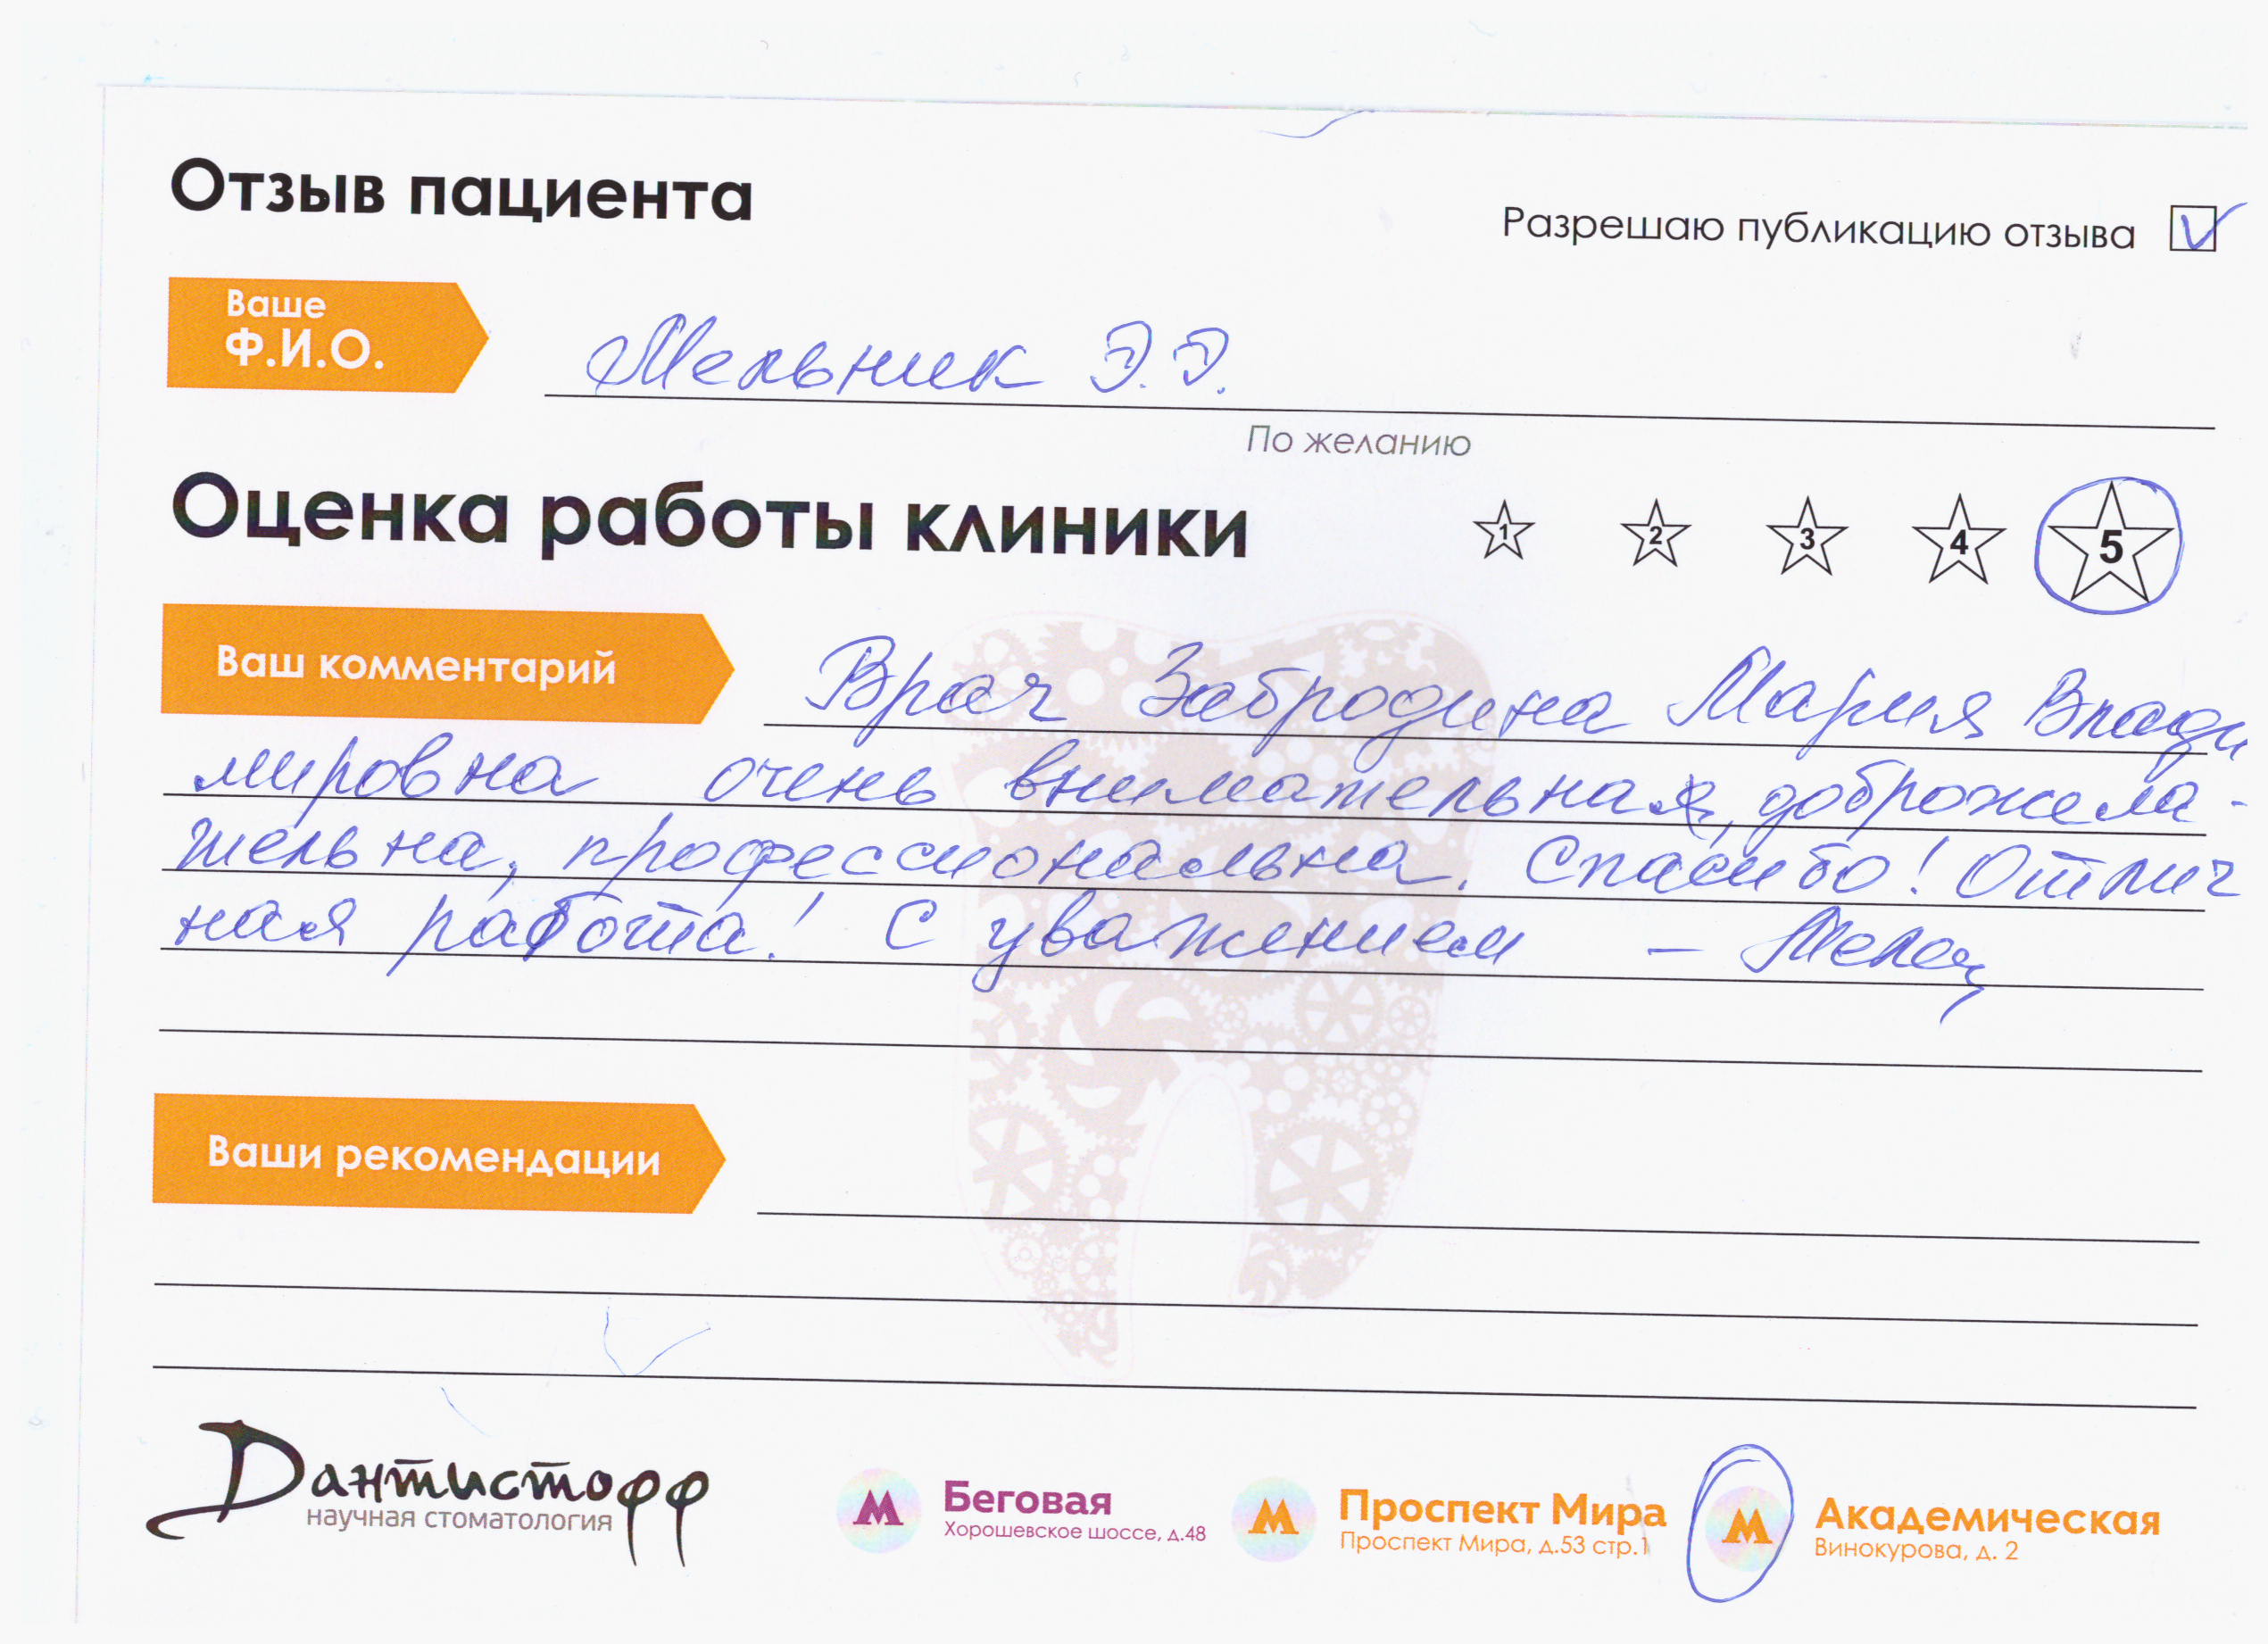 Отзыв пациента
Разрешаю публикацию отзыва
Ваше
Ф.И.О.
Мельник Э.Э.
По желанию
Оценка работы клиники
1 2 3 4 5
Ваш комментарий
Врач Забродина Мария Влади
мировна очень внимательная, доброжела-
тельна, профессиональна. Спасибо! Отлич
ная работа! С уважением –
Ваши рекомендации
Дантистофф
научная стоматология
М Беговая
Хорошевское шоссе, д.48
М Проспект Мира
Проспект Мира, д.53 стр.1
М Академическая
Винокурова, д. 2